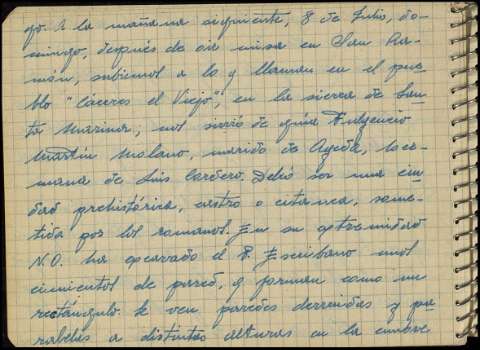 go. A la mañana siguiente, 8 de Julio, do-
mingo, después de oir misa en San Ra-
món, subimos a lo q llaman en el pue-
blo "Cáceres el Viejo", en la sierra de San-
ta Marina; nos sirvió de guía Fulgencio
Martín Molano, marido de Ageda, her-
mana de Luis Cordero. Debió ser una ciu-
dad prehistórica, castro o citanea, some-
tida por los romanos. En su extremidad
N.O. ha excavado el P. Escribano unos
cimientos de pared, q forman como un
rectángulo. Se ven paredes derruidas y pa-
ralelas a distintas alturas en la cumbre